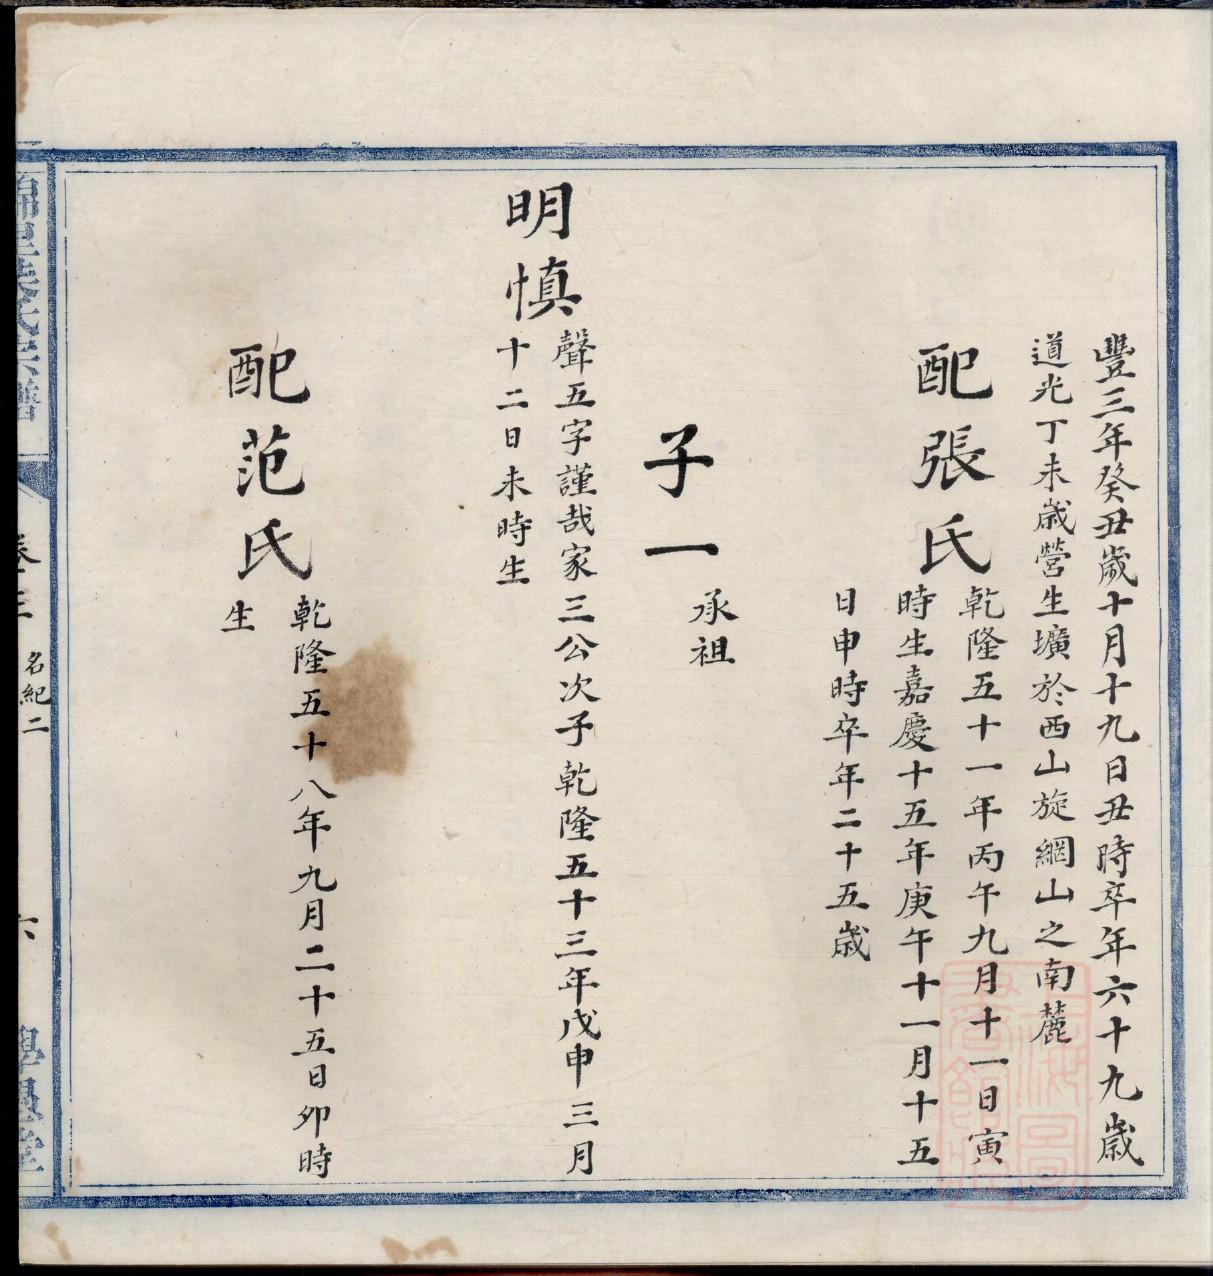 豐三年癸丑歲十月十九日丑時卒年六十九歲
道光丁未歲營生壙於西山旋網山之南麓
配張氏
乾隆五十一年丙午九月十一日寅
時生嘉慶十五年庚午十一月十五
日申時卒年二十五歲
子一
承祖
明慎
聲五字謹哉家三公次子乾隆五十三年戊申三月
十二日未時生
配范氏
乾隆五十八年九月二十五日卯時
生
卷三
名紀二
六